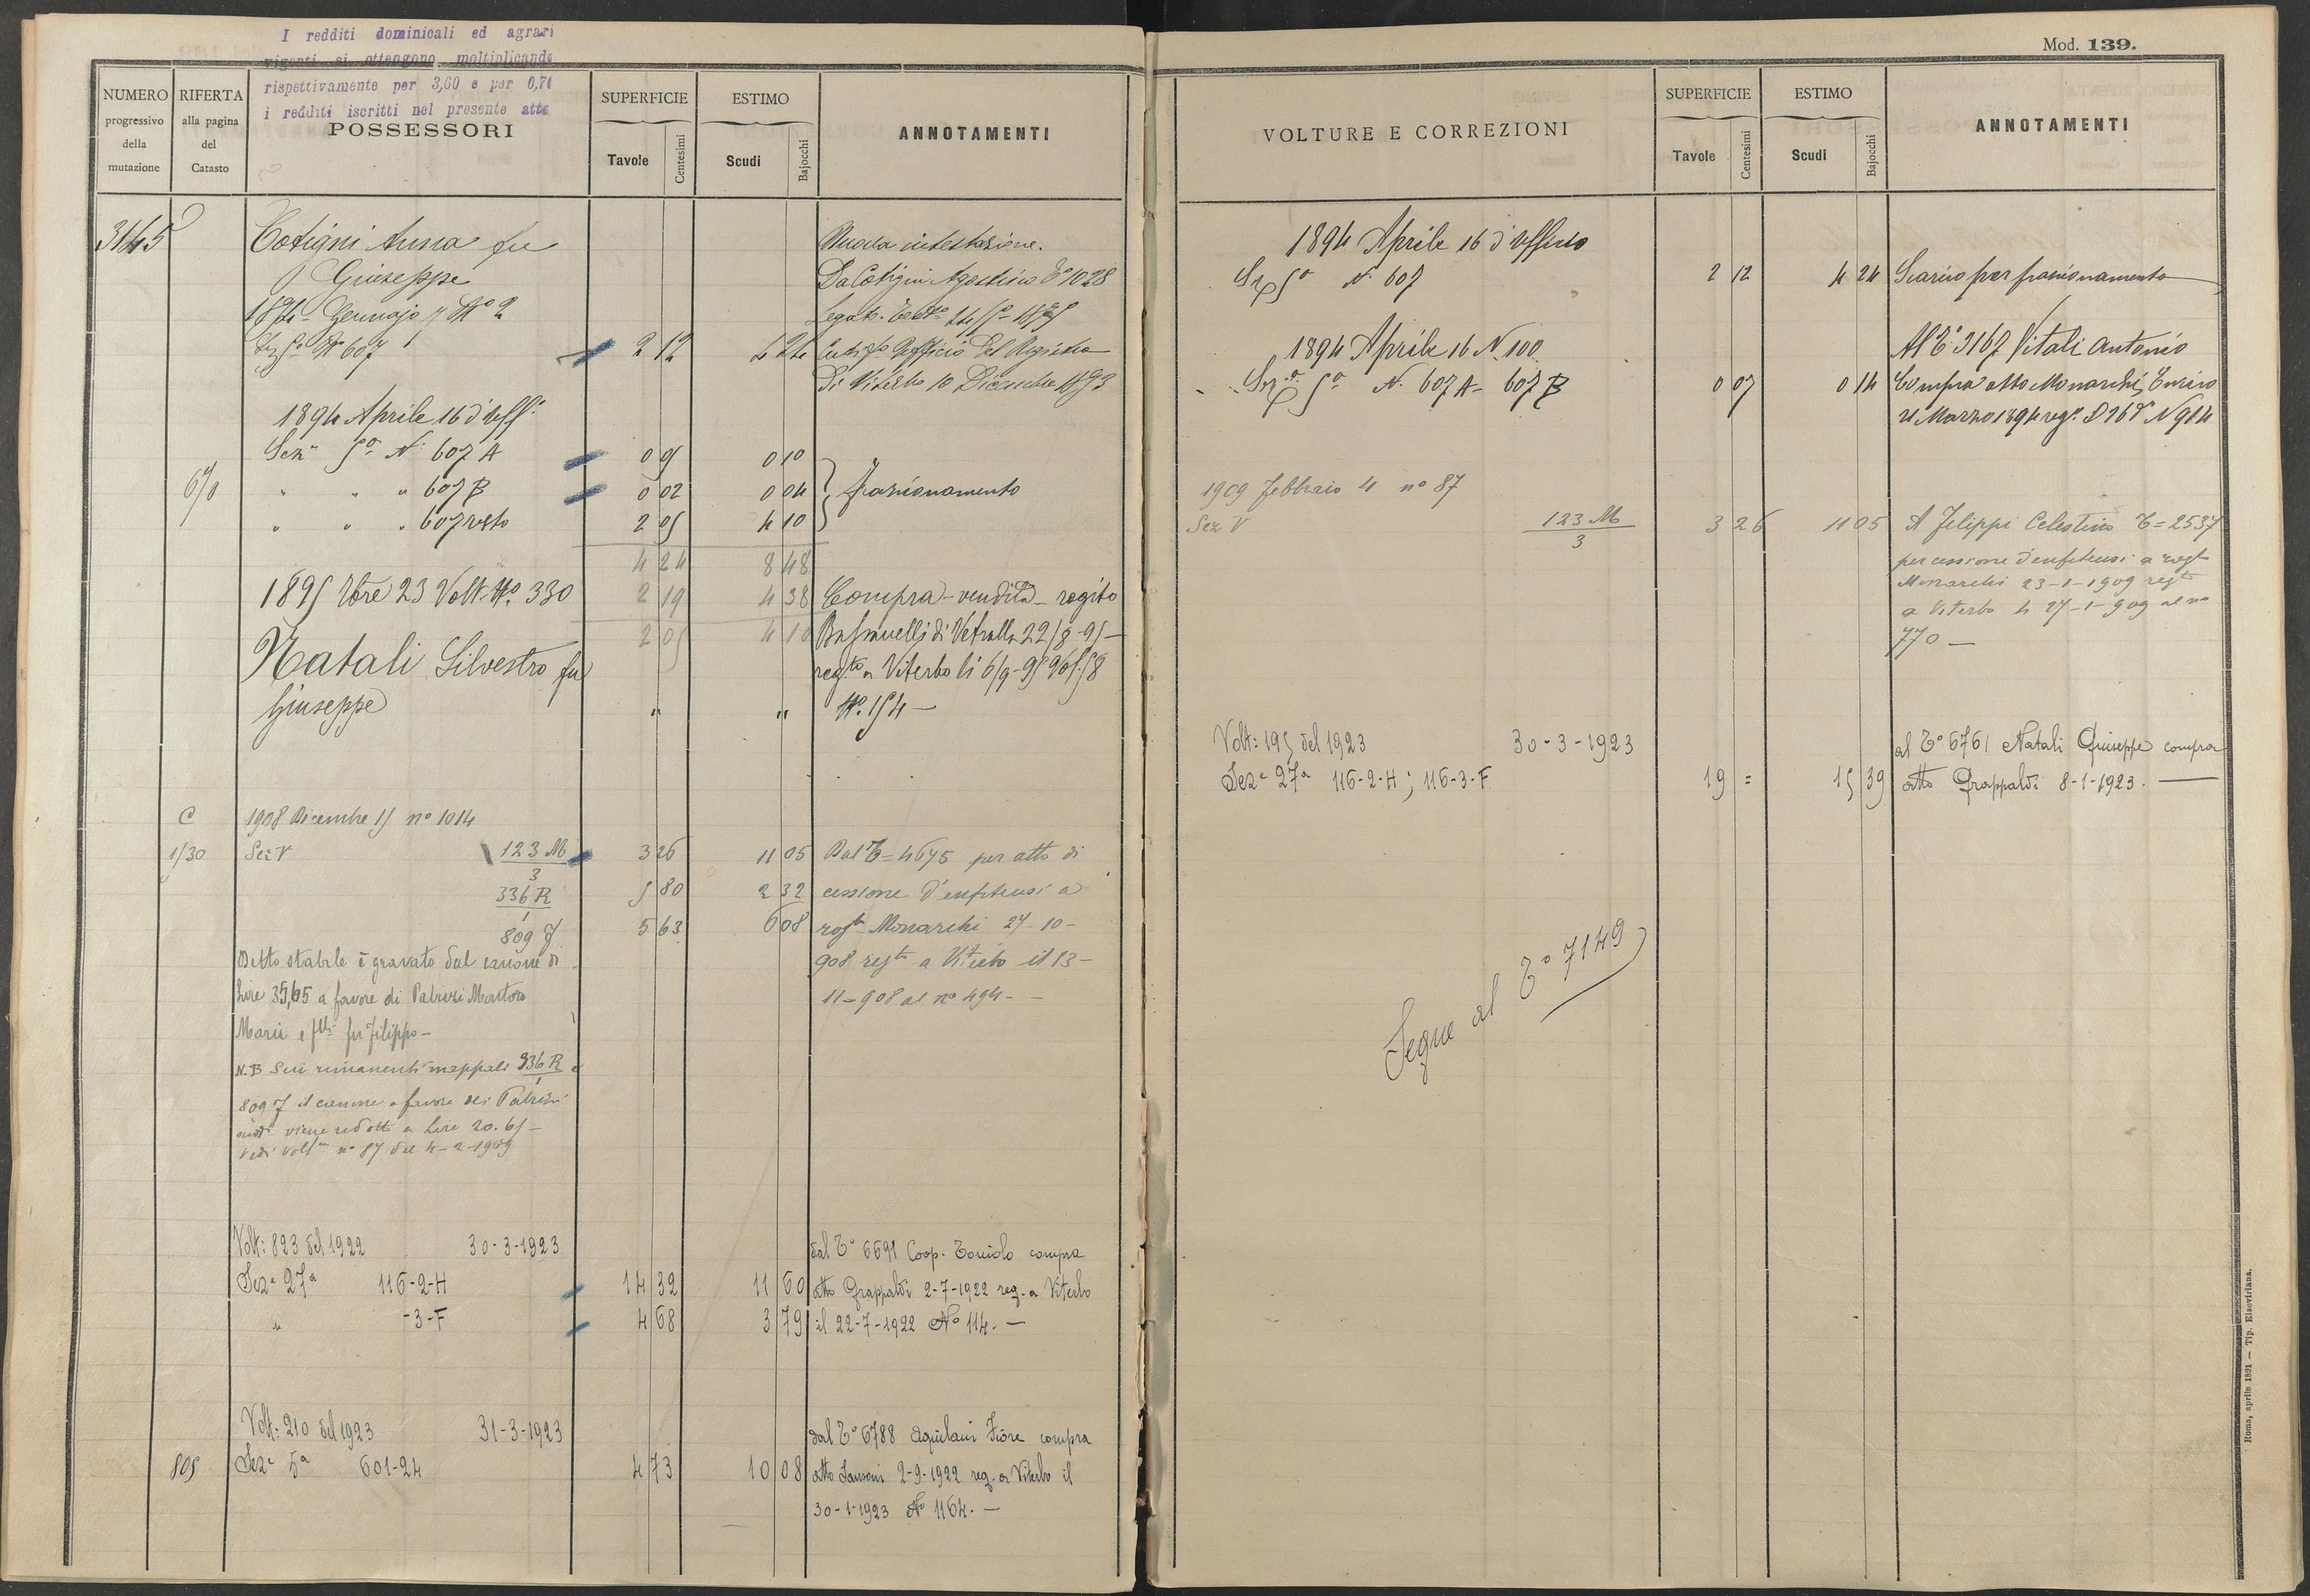 I redditi dominicali ed agrari
vigenti si ottengono moltiplicando
rispettivamente per 3,60 e per 0,70
i redditi iscritti nel presente atto
NUMERO progressivo della mutazione
RIFERTA alla pagina del Catasto
POSSESSORI
SUPERFICIE
Tavole Centesimi
ESTIMO
Scudi Bajocchi
ANNOTAMENTI
3145 Cotigni Anna fu Nuova intestazione.
Giuseppe Da Cotigni Agostino T° 1028
1894 Gennajo 7 N° 2
Sez 5a N° 607 2 12 4 24 Ufficio del Registro
Di Viterbo 10 Dicembre 1893
1894 Aprile 16 d'Uff°
Sezn 5a N. 607 A 0 5 0 10
670 " " " 607 B 0 02 0 04 frazionamento
" " " 607 resto 2 05 4 10
4 24 8 48
1895 9bre 23 Volt. N°. 330 2 19 4 38 Compra-vendita - rogito
2 05 4 10 di Vetralla 22/8-95 -
Natali Silvestro fu regto a Viterbo li 6/9-95 Vol. 58
Giuseppe " " N°. 154 -
C 1908 Dicembre 15 n° 1014
1/30 Sez V 123 M/3 3 26 11 05 Dal T= 4675 per atto di
336 R/1 5 80 2 32 cessione d'enfiteusi a
809 J 5 63 6 08 rogto Monarchi 27-10-
Detto stabile è gravato dal canone di 908 regto a Viterbo il 13-
Lire 35,65 a favore di Patrizi Montoro 11-908 al n° 494 - -
Maria e flli fu Filippo -
N.B Sui rimanenti mappali 336 R/1 e
809 J il canone a favore dei Patrizi
viene ridotto a Lire 20.65 -
Vedi Volt. n° 87 del 4-2-1909
Volt: 823 del 1922 30-3-1923 dal T° 6691 Coop. Toniolo compra
Seze 27a 116-2-H 14 32 11 60 atto Grappaldi 2-7-1922 reg. a Viterbo
" -3-F 4 68 3 79 il 22-7-1922 N° 114. -
Volt: 210 del 1923 31-3-1923 dal T° 6788 Aquilani Fiore compra
805 Seze 5a 601-24 4 73 10 08 atto Sansoni 2-9-1922 reg. a Viterbo il
30-1-1923 N° 1164. -
Mod. 139.
VOLTURE E CORREZIONI
SUPERFICIE
Tavole Centesimi
ESTIMO
Scudi Bajocchi
ANNOTAMENTI
1894 Aprile 16 d'Ufficio
Sez 5a N. 607 2 12 4 24 Scarico per frazionamento
1894 Aprile 16 N 100 Al T° 3167 Vitali Antonio
Sez 5a N. 607 A - 607 B 0 07 0 14 Compra atto Monarchi Enrico
21 Marzo 1894 N 914
1909 Febbraio 4 n° 87
Sez V 123 M/3 3 26 11 05 A Filippi Celestino T= 2537
per cessione d'enfiteusi a rogto
Monarchi 23-1-1909 regto
a Viterbo li 27-1-909 al n°
770 -
Volt: 195 del 1923 30-3-1923 al T° 6761 Natali Giuseppe compra
Seze 27a 116-2-H; 116-3-F 19 = 15 39 atto Grappaldi 8-1-1923. -
Segue al T° 7149
Roma, aprile 1891 — Tip. Elzeviriana.